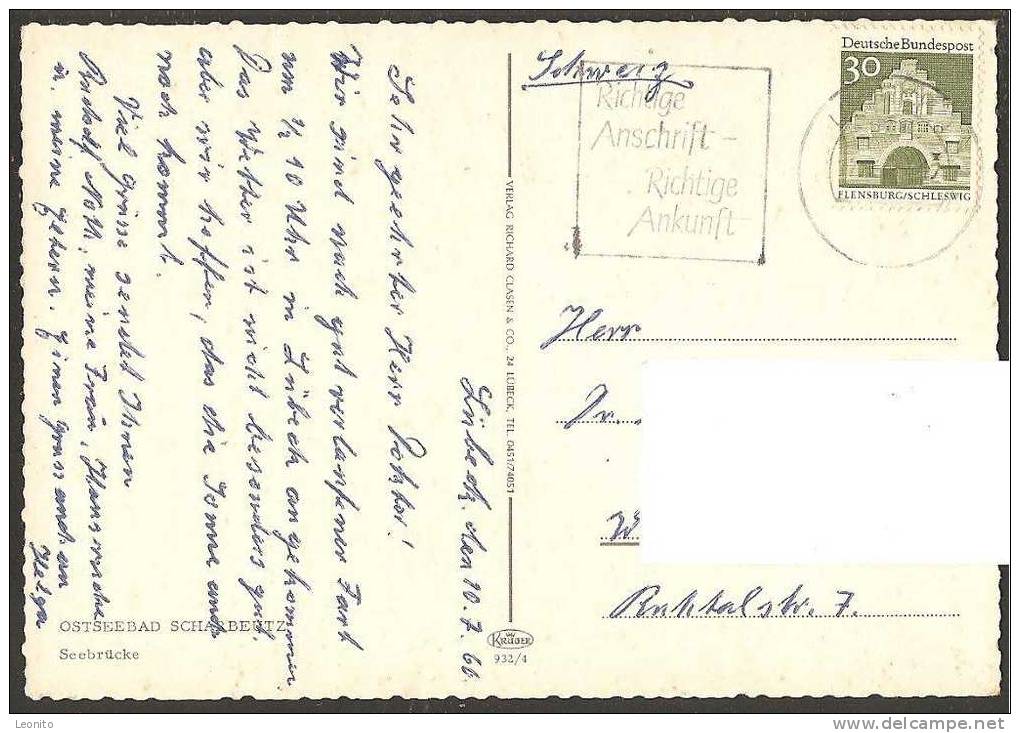 Lübeck, den 10.7.66
Sehr geehrter Herr Doktor!
Wir sind nach gut verlaufener Fart
um ½ 10 Uhr in Lübeck angekommen.
Das Wetter ist nicht besonders gut,
aber wir hoffen, das die Sonne auch
noch kommt.
Viel Grüsse sendet Ihnen
Rudolf Noth, meine Frau,
u. meine
Einen Gruss auch an
Helga
OSTSEEBAD SCHARBEUTZ
Seebrücke
VERLAG RICHARD CLASEN & CO., 24 LÜBECK, TEL. 0451/74051
KRÜGER
932/4
Schweiz
Richtige
Anschrift -
Richtige
Ankunft
Deutsche Bundespost
30
FLENSBURG/SCHLESWIG
Herr
Dr.
W
7.
Leonito
www.delcampe.net